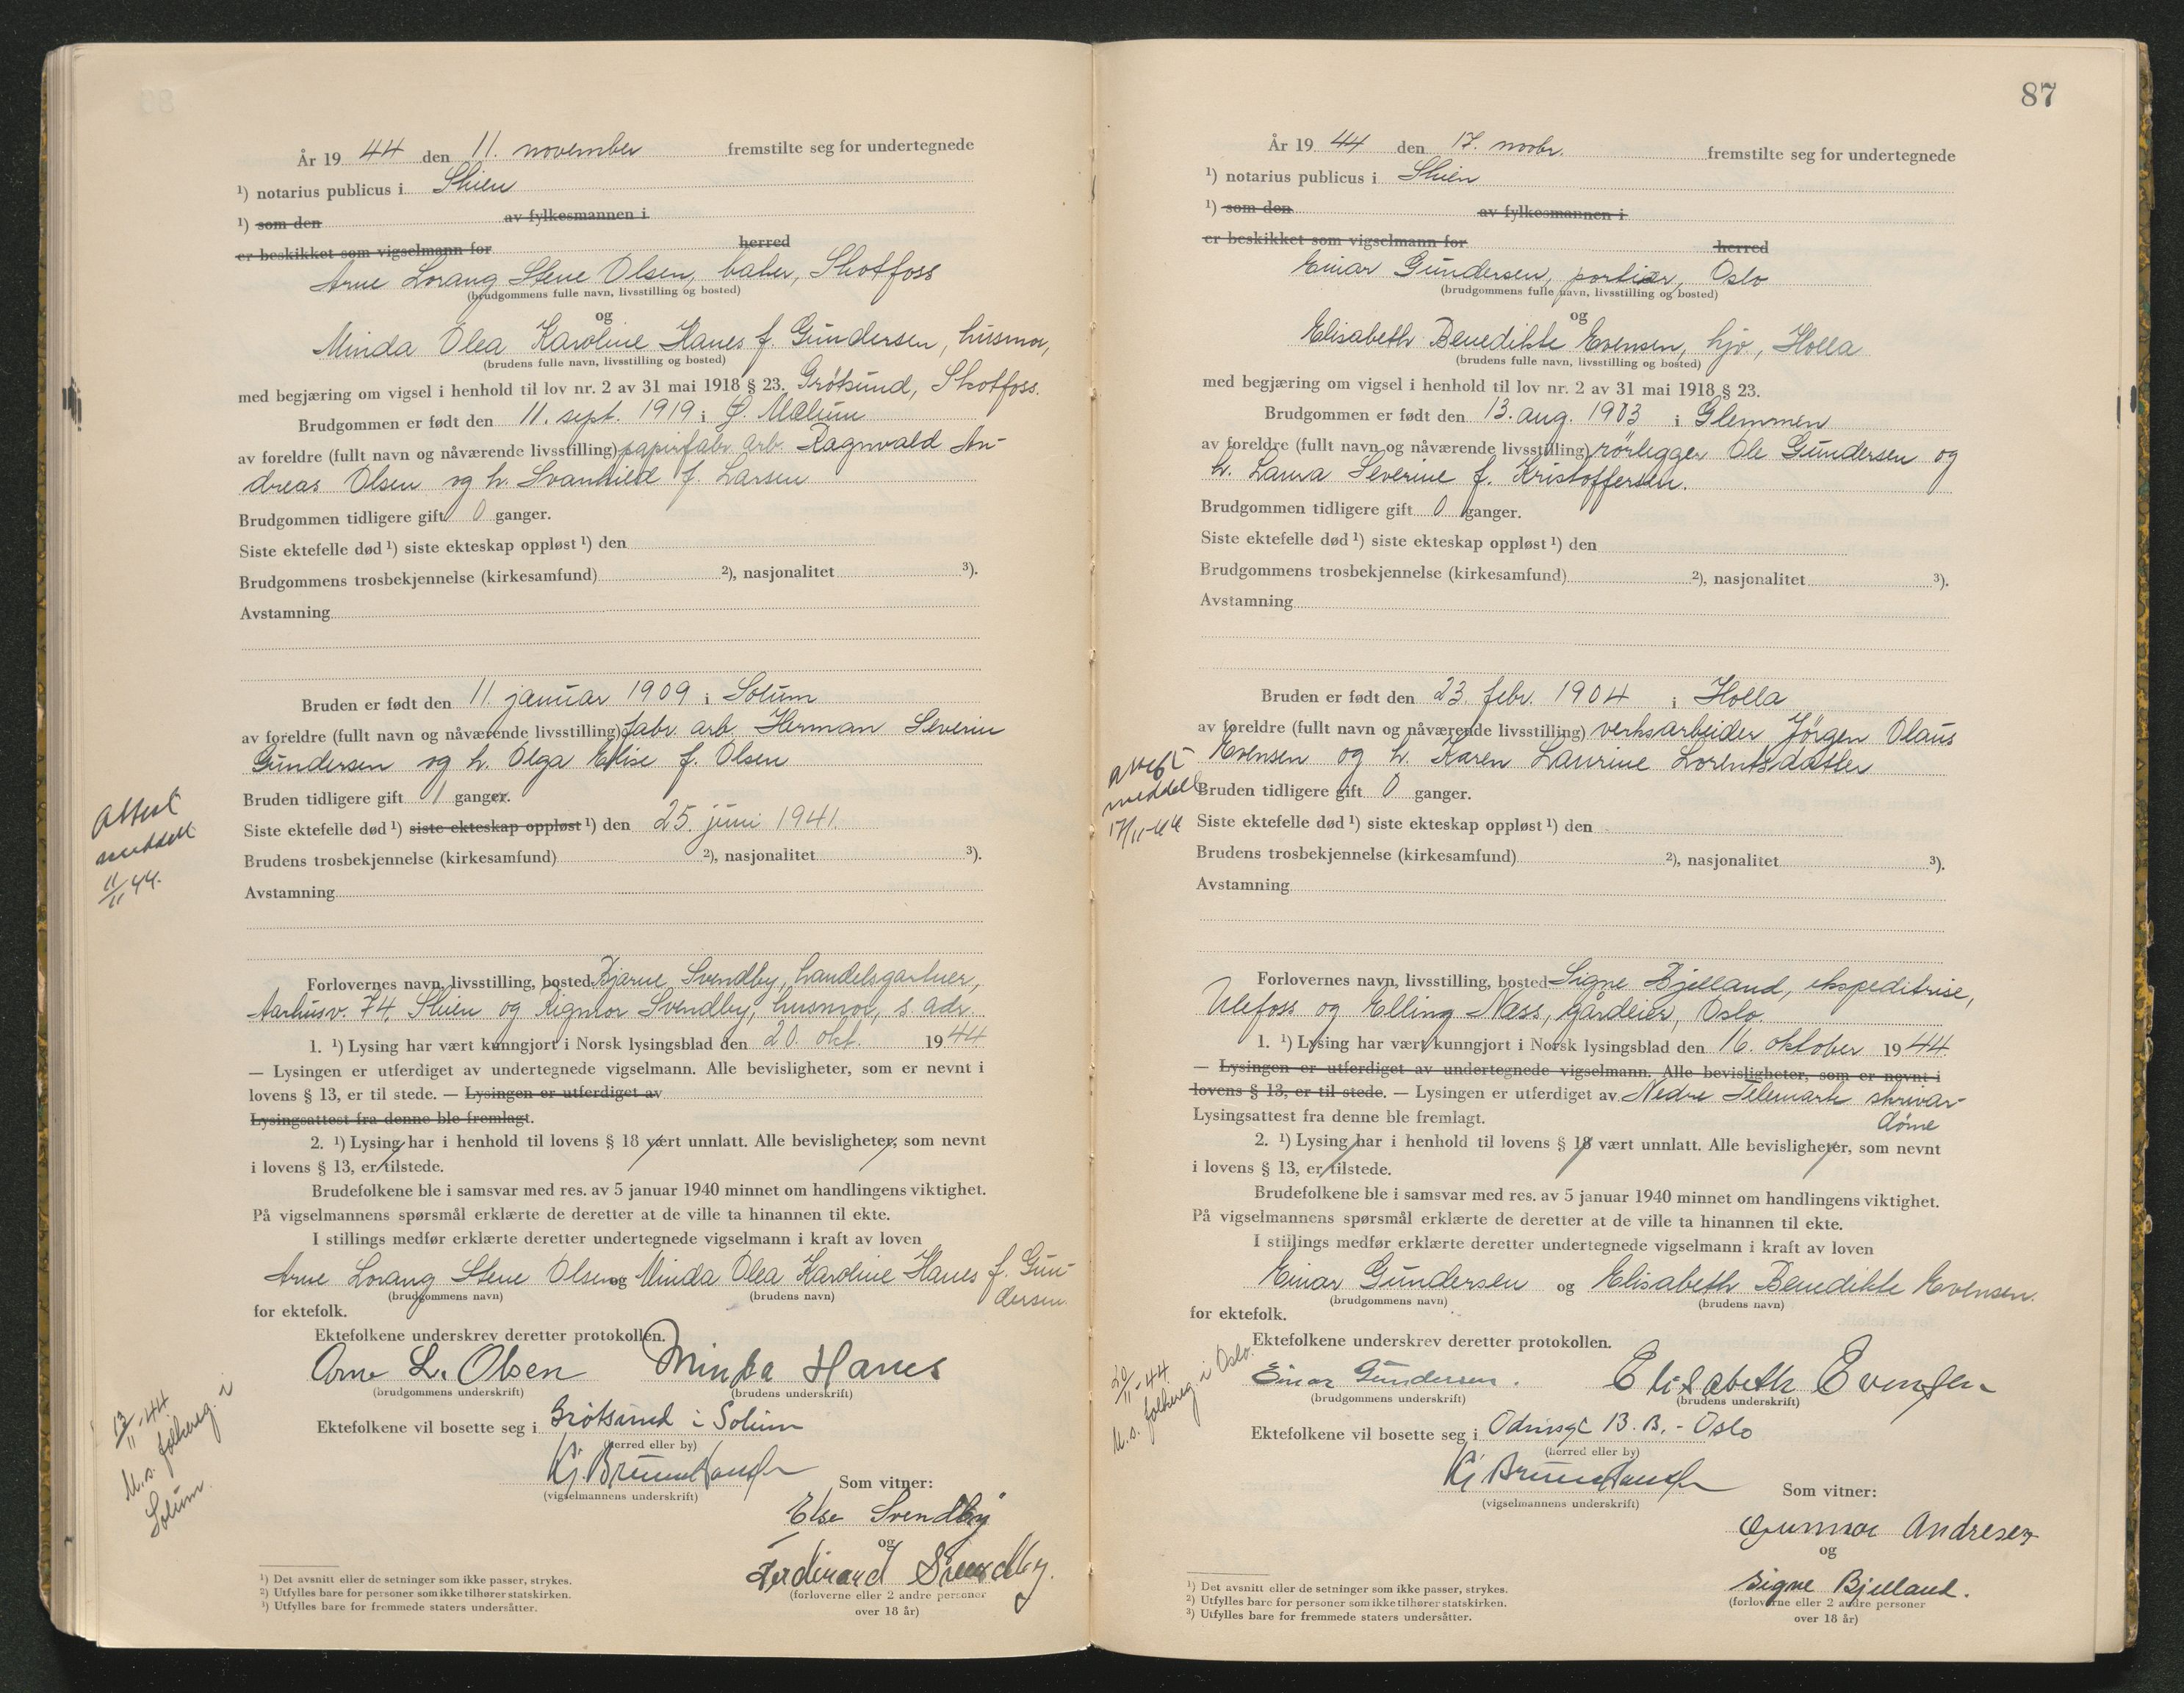 År 19 44 den 11. november fremstilte seg for undertegnede
¹) notarius publicus i Skien
¹) som den av fylkesmannen i
er beskikket som vigselmann for herred
Arne Lorang Stene Olsen, baker, Skotfoss
(brudgommens fulle navn, livsstilling og bosted)
og
Minda Olea Karoline Hanes f. Gundersen, husmor,
(brudens fulle navn, livsstilling og bosted)
med begjæring om vigsel i henhold til lov nr. 2 av 31 mai 1918 § 23. Grøtsund, Skotfoss.
Brudgommen er født den 11. sept. 1919 i Ø. Mælum
av foreldre (fullt navn og nåværende livsstilling) papirfabr. arb. Ragnvald An-
dreas Olsen og h. Svanhild f. Larsen
Brudgommen tidligere gift 0 ganger.
Siste ektefelle død ¹) siste ekteskap oppløst ¹) den
Brudgommens trosbekjennelse (kirkesamfund) ²), nasjonalitet ³).
Avstamning
Bruden er født den 11. januar 1909 i Solum
av foreldre (fullt navn og nåværende livsstilling) fabr. arb. Herman Severin
Gundersen og h. Olga Elise f. Olsen
Bruden tidligere gift 1 ganger.
Siste ektefelle død ¹) siste ekteskap oppløst ¹) den 25. juni 1941.
Brudens trosbekjennelse (kirkesamfund) ²), nasjonalitet ³).
Avstamning
Attest
meddelt
11/11 44.
Forlovernes navn, livsstilling, bosted Bjarne Svendby, handelsgartner,
Aarhusv. 74, Skien og Rigmor Svendby, husmor, s. adr.
1. ¹) Lysing har vært kunngjort i Norsk lysingsblad den 20. okt. 19 44
— Lysingen er utferdiget av undertegnede vigselmann. Alle bevisligheter, som er nevnt i
lovens § 13, er til stede. — Lysingen er utferdiget av
Lysingsattest fra denne ble fremlagt.
2. ¹) Lysing har i henhold til lovens § 18 vært unnlatt. Alle bevisligheter, som nevnt
i lovens § 13, er tilstede.
Brudefolkene ble i samsvar med res. av 5 januar 1940 minnet om handlingens viktighet.
På vigselmannens spørsmål erklærte de deretter at de ville ta hinannen til ekte.
I stillings medfør erklærte deretter undertegnede vigselmann i kraft av loven
Arne Lorang Stene Olsen og Minda Olea Karoline Hanes f. Gun-
dersen
(brudgommens navn) (brudens navn)
for ektefolk.
Ektefolkene underskrev deretter protokollen.
Arne L. Olsen Minda Hanes
(brudgommens underskrift) (brudens underskrift)
Ektefolkene vil bosette seg i Grøtsund i Solum
(herred eller by)
13/11-44.
M.s. folkereg. i
Solum.
(vigselmannens underskrift)
Som vitner:
Else Svendby
og
Ferdinand Svendby.
(forloverne eller 2 andre personer
over 18 år)
¹) Det avsnitt eller de setninger som ikke passer, strykes.
²) Utfylles bare for personer som ikke tilhører statskirken.
³) Utfylles bare for fremmede staters undersåtter.
87
År 19 44 den 17. novbr. fremstilte seg for undertegnede
¹) notarius publicus i Skien
¹) som den av fylkesmannen i
er beskikket som vigselmann for herred
Einar Gundersen, portier, Oslo
(brudgommens fulle navn, livsstilling og bosted)
og
Elisabeth Benedikte Evensen, hjv, Holla
(brudens fulle navn, livsstilling og bosted)
med begjæring om vigsel i henhold til lov nr. 2 av 31 mai 1918 § 23.
Brudgommen er født den 13. aug. 1903 i Glemmen
av foreldre (fullt navn og nåværende livsstilling) rørlegger Ole Gundersen og
h. Laura Severine f. Kristoffersen.
Brudgommen tidligere gift 0 ganger.
Siste ektefelle død ¹) siste ekteskap oppløst ¹) den
Brudgommens trosbekjennelse (kirkesamfund) ²), nasjonalitet ³).
Avstamning
Bruden er født den 23. febr. 1904 i Holla
av foreldre (fullt navn og nåværende livsstilling) verksarbeider Jørgen Olaus
Evensen og h. Karen Laurine Lorentsdatter
Bruden tidligere gift 0 ganger.
Attest
meddelt
17/11-44
Siste ektefelle død ¹) siste ekteskap oppløst ¹) den
Brudens trosbekjennelse (kirkesamfund) ²), nasjonalitet ³).
Avstamning
Forlovernes navn, livsstilling, bosted Signe Bjelland, ekspeditrise,
Ulefoss og Elling Næss, gårdeier, Oslo
1. ¹) Lysing har vært kunngjort i Norsk lysingsblad den 16. oktober 19 44.
— Lysingen er utferdiget av undertegnede vigselmann. Alle bevisligheter, som er nevnt i
lovens § 13, er til stede. — Lysingen er utferdiget av Nedre Telemark skrivar-
døme
Lysingsattest fra denne ble fremlagt.
2. ¹) Lysing har i henhold til lovens § 18 vært unnlatt. Alle bevisligheter, som nevnt
i lovens § 13, er tilstede.
Brudefolkene ble i samsvar med res. av 5 januar 1940 minnet om handlingens viktighet.
På vigselmannens spørsmål erklærte de deretter at de ville ta hinannen til ekte.
I stillings medfør erklærte deretter undertegnede vigselmann i kraft av loven
Einar Gundersen og Elisabeth Benedikte Evensen.
(brudgommens navn) (brudens navn)
for ektefolk.
Ektefolkene underskrev deretter protokollen.
Einar Gundersen. Elisabeth Evensen
(brudgommens underskrift) (brudens underskrift)
20/11-44.
M.s. folkereg. i Oslo.
Ektefolkene vil bosette seg i Odinsgt 13. B. - Oslo
(herred eller by)
(vigselmannens underskrift)
Som vitner:
Gunnar Andresen
og
Signe Bjelland.
(forloverne eller 2 andre personer
over 18 år)
¹) Det avsnitt eller de setninger som ikke passer, strykes.
²) Utfylles bare for personer som ikke tilhører statskirken.
³) Utfylles bare for fremmede staters undersåtter.